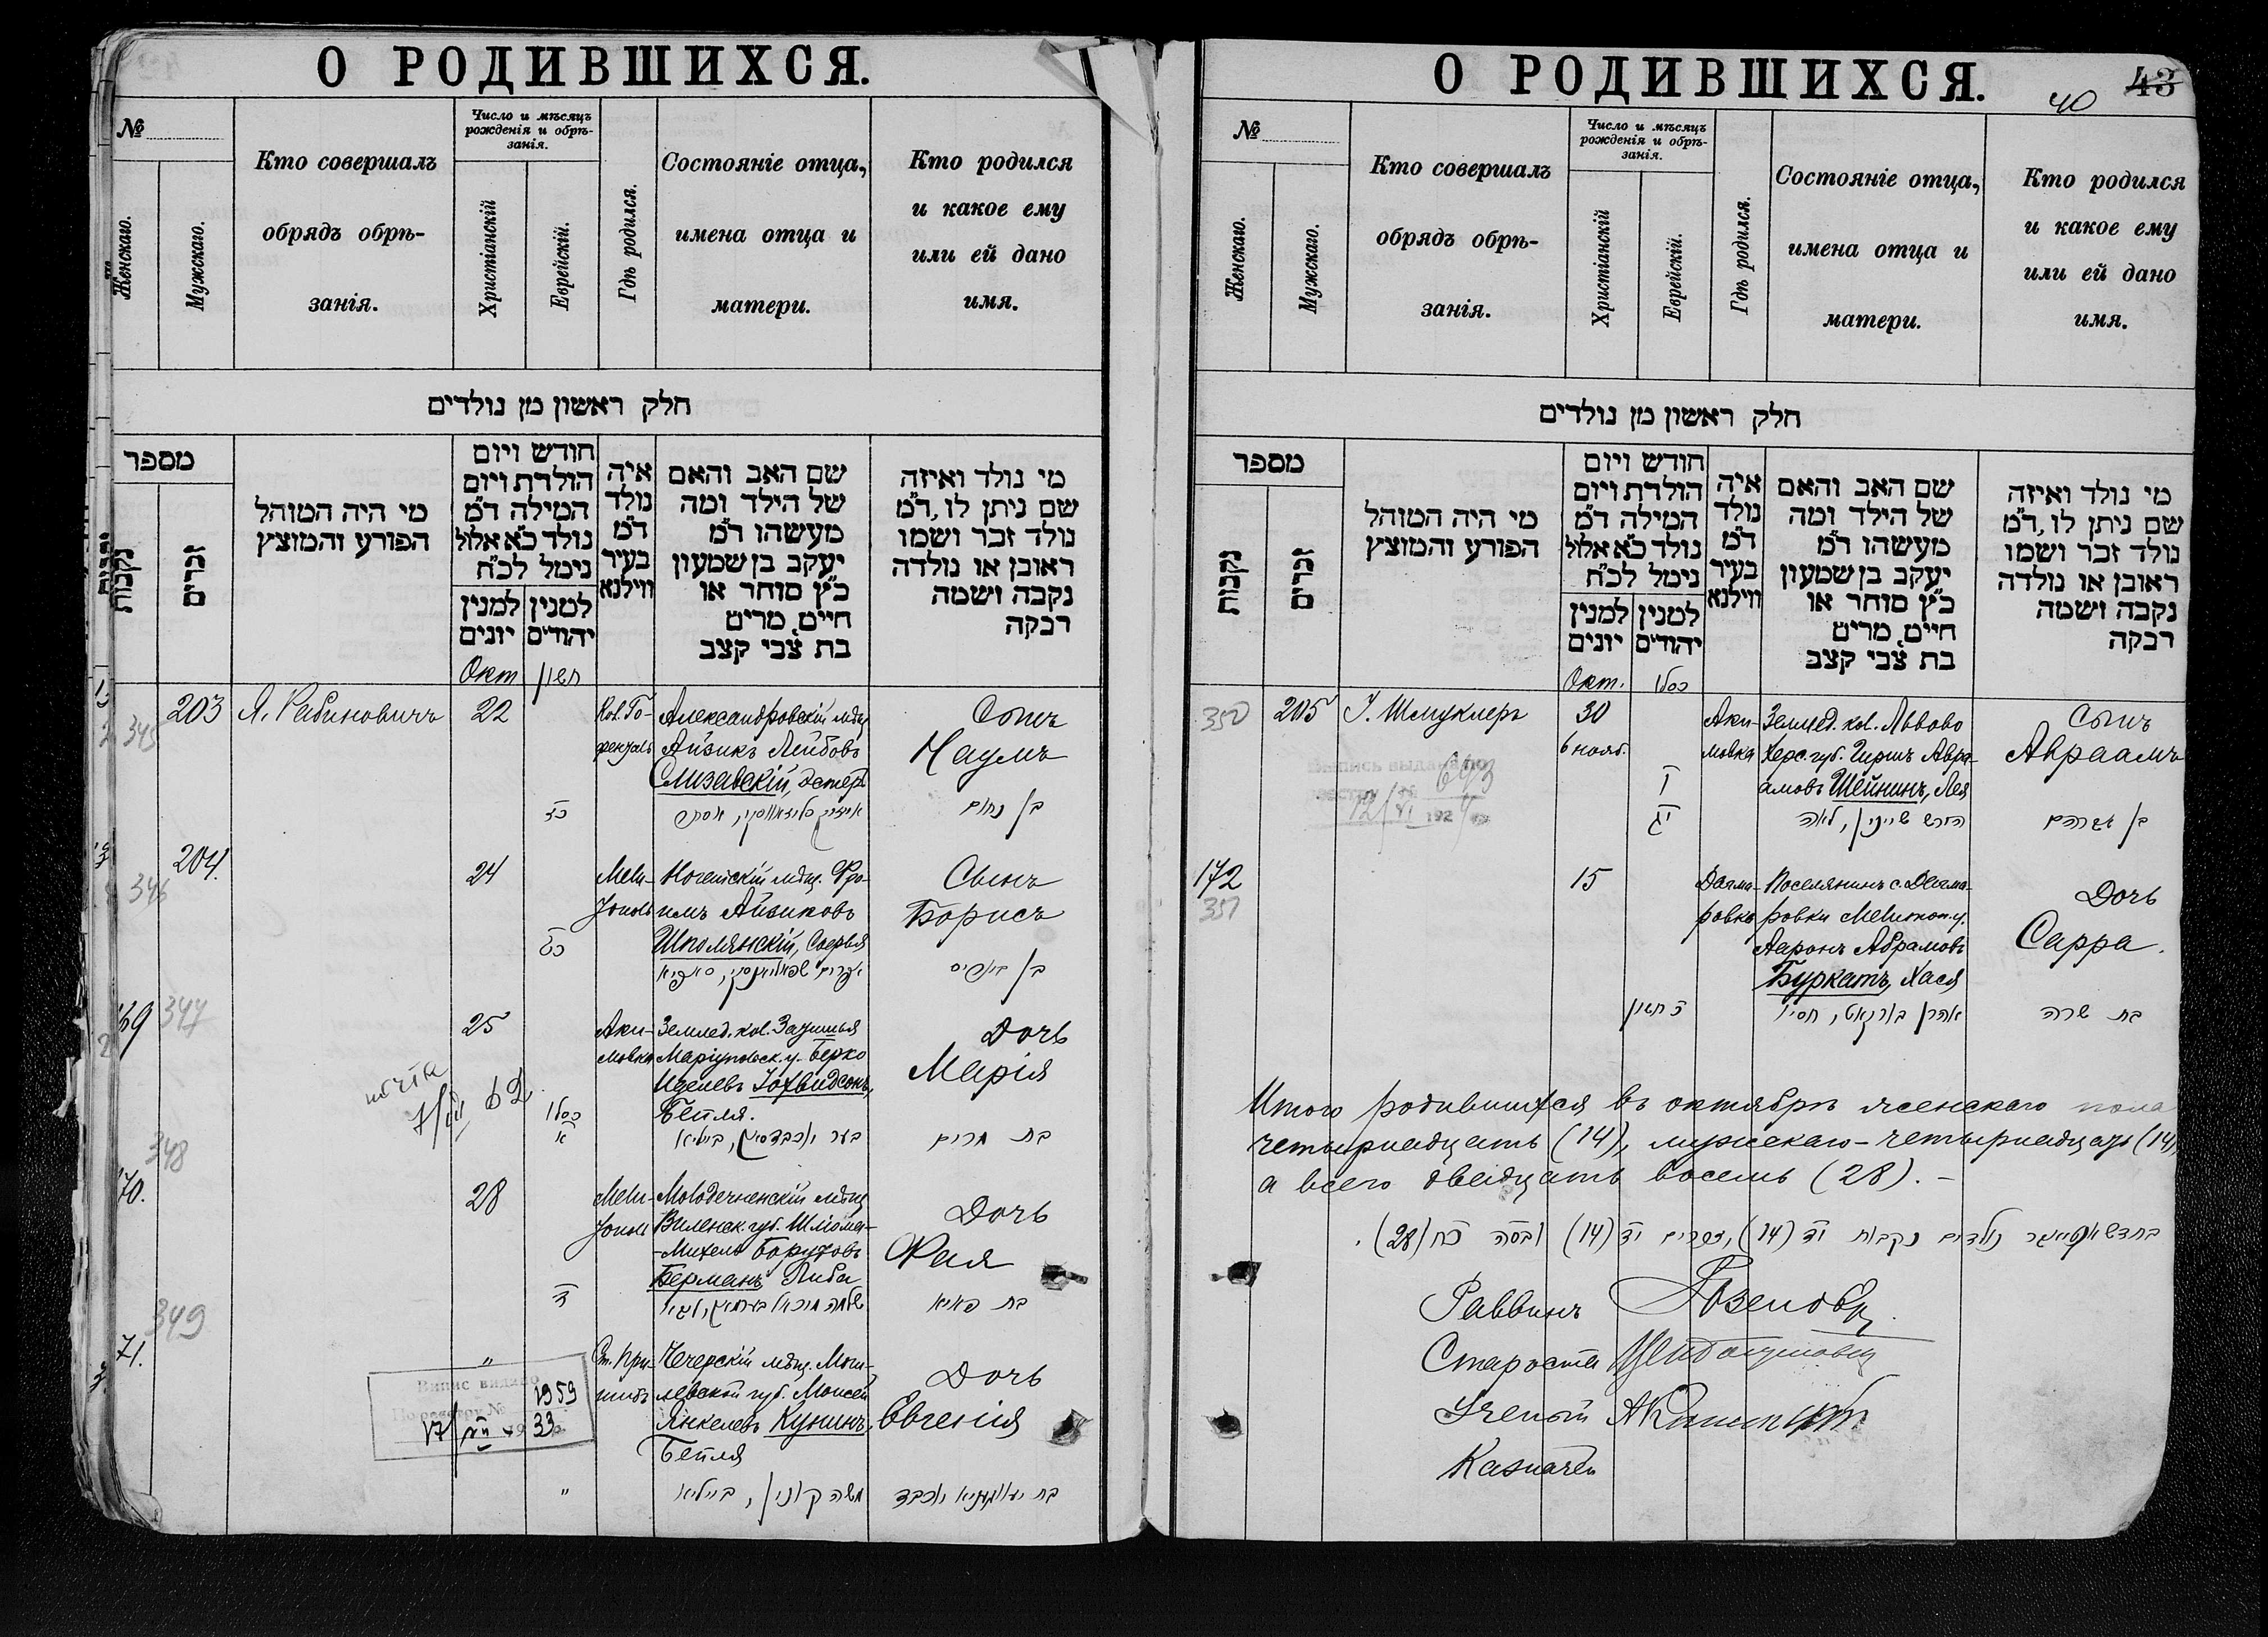 О РОДИВШИХСЯ.
№
Женскаго.
Мужскаго.
Кто совершалъ
обрядъ обрѣ-
занія.
Число и мѣсяцъ
рожденія и обрѣ-
занія.
Христіанскій
Еврейскій.
Гдѣ родился.
Состояніе отца,
имена отца и
матери.
Кто родился
и какое ему
или ей дано
имя.
חלק ראשון מן נולדים
מספר
נקבות
זכרים
מי היה המוהל
הפורע והמוצץ
חודש ויום
הולדת ויום
המילה ד״מ
נולד כ״א אלול
נימל לכ״ח
למנין
יונים
למנין
יהודים
איה
נולד
ד״מ
בעיר
ווילנא
שם האב והאם
של הילד ומה
מעשהו ד״מ
יעקב בן שמעון
כ״ץ סוחר או
חיים, מרים
בת צבי קצב
מי נולד ואיזה
שם ניתן לו, ד״מ
נולד זכר ושמו
ראובן או נולדה
נקבה ושמה
רבקה
Окт
חשון
345
203
Я. Рабиновичъ
22
כד
Александровскій мѣщ
Айзикъ Лейбовъ
Слизавскій, Эстеръ
Сынъ
Наумъ
בן נחום
346
204.
24
כו
Мели-
тополь
Ногайскій мѣщ. Фро-
имъ Айзиковъ
Шполянскій,
Сынъ
Борисъ
169
347
25
כסלו
א
Аки-
мовка
Землед. кол.
Маріупольск. у. Берко
Иделевъ
Бейля.
Дочь
Марія
בת מרים
62
348
170.
28
ד
Мели-
тополь
Молодечненскій мѣщ
Виленск. губ. Шлема-
-Михель Боруховъ
Берманъ, Либа
Дочь
Фая
בת פאיא
349
171.
"
Ст. При-
шибъ
Чечерскій мѣщ. Моги-
левской губ. Моисей
Янкелевъ Кунинъ,
Бейля
משה קונין, ביילא
Дочь
Евгенія
"
Випис видано
По реєстру №
1959
17/XII 1933 р.
О РОДИВШИХСЯ.
43
40
№
Женскаго.
Мужскаго.
Кто совершалъ
обрядъ обрѣ-
занія.
Число и мѣсяцъ
рожденія и обрѣ-
занія.
Христіанскій
Еврейскій.
Гдѣ родился.
Состояніе отца,
имена отца и
матери.
Кто родился
и какое ему
или ей дано
имя.
חלק ראשון מן נולדים
מספר
נקבות
זכרים
מי היה המוהל
הפורע והמוצץ
חודש ויום
הולדת ויום
המילה ד״מ
נולד כ״א אלול
נימל לכ״ח
למנין
יונים
למנין
יהודים
איה
נולד
ד״מ
בעיר
ווילנא
שם האב והאם
של הילד ומה
מעשהו ד״מ
יעקב בן שמעון
כ״ץ סוחר או
חיים, מרים
בת צבי קצב
מי נולד ואיזה
שם ניתן לו, ד״מ
נולד זכר ושמו
ראובן או נולדה
נקבה ושמה
רבקה
Окт.
כסלו
350
205
І. Шмуклеръ
30
6 нояб.
ו
יג
Аки-
мовка
Землед. кол. Львово
Херс. губ. Гиршъ Авра-
амовъ Шейнинъ, Лея
הירש שיינין, לאה
Сынъ
Авраамъ
בן אברהם
Выпись выдана по
172
351
15
ח חשון
Дагма-
ровка
Поселянинъ с. Дагма-
ровки Мелитоп. у.
Ааронъ Абрамовъ
Буркатъ, Хася
אהרן בורקאט, חסיא
Дочь
Сарра.
בת שרה
Итого родившихся въ октябрѣ женскаго пола
четырнадцать (14), мужскаго - четырнадцать (14),
а всего двадцать восемь (28). -
Раввинъ
Староста
Ученый
Казначей